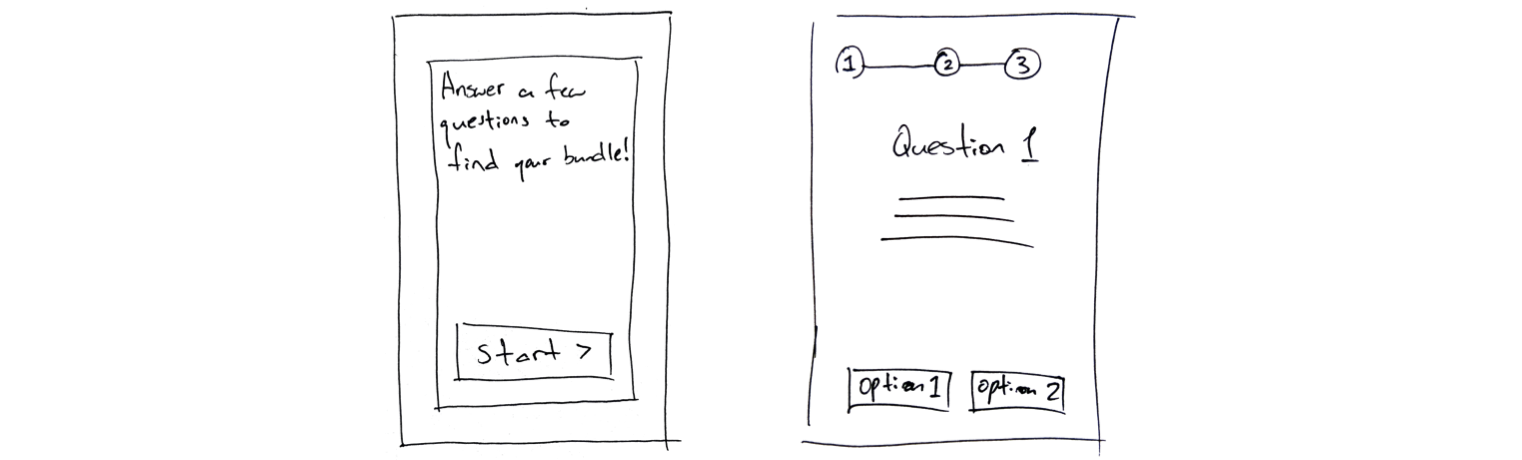 Answer a few
questions to
find your bundle!
Start >
1 2 3
Question 1
option 1
option 2